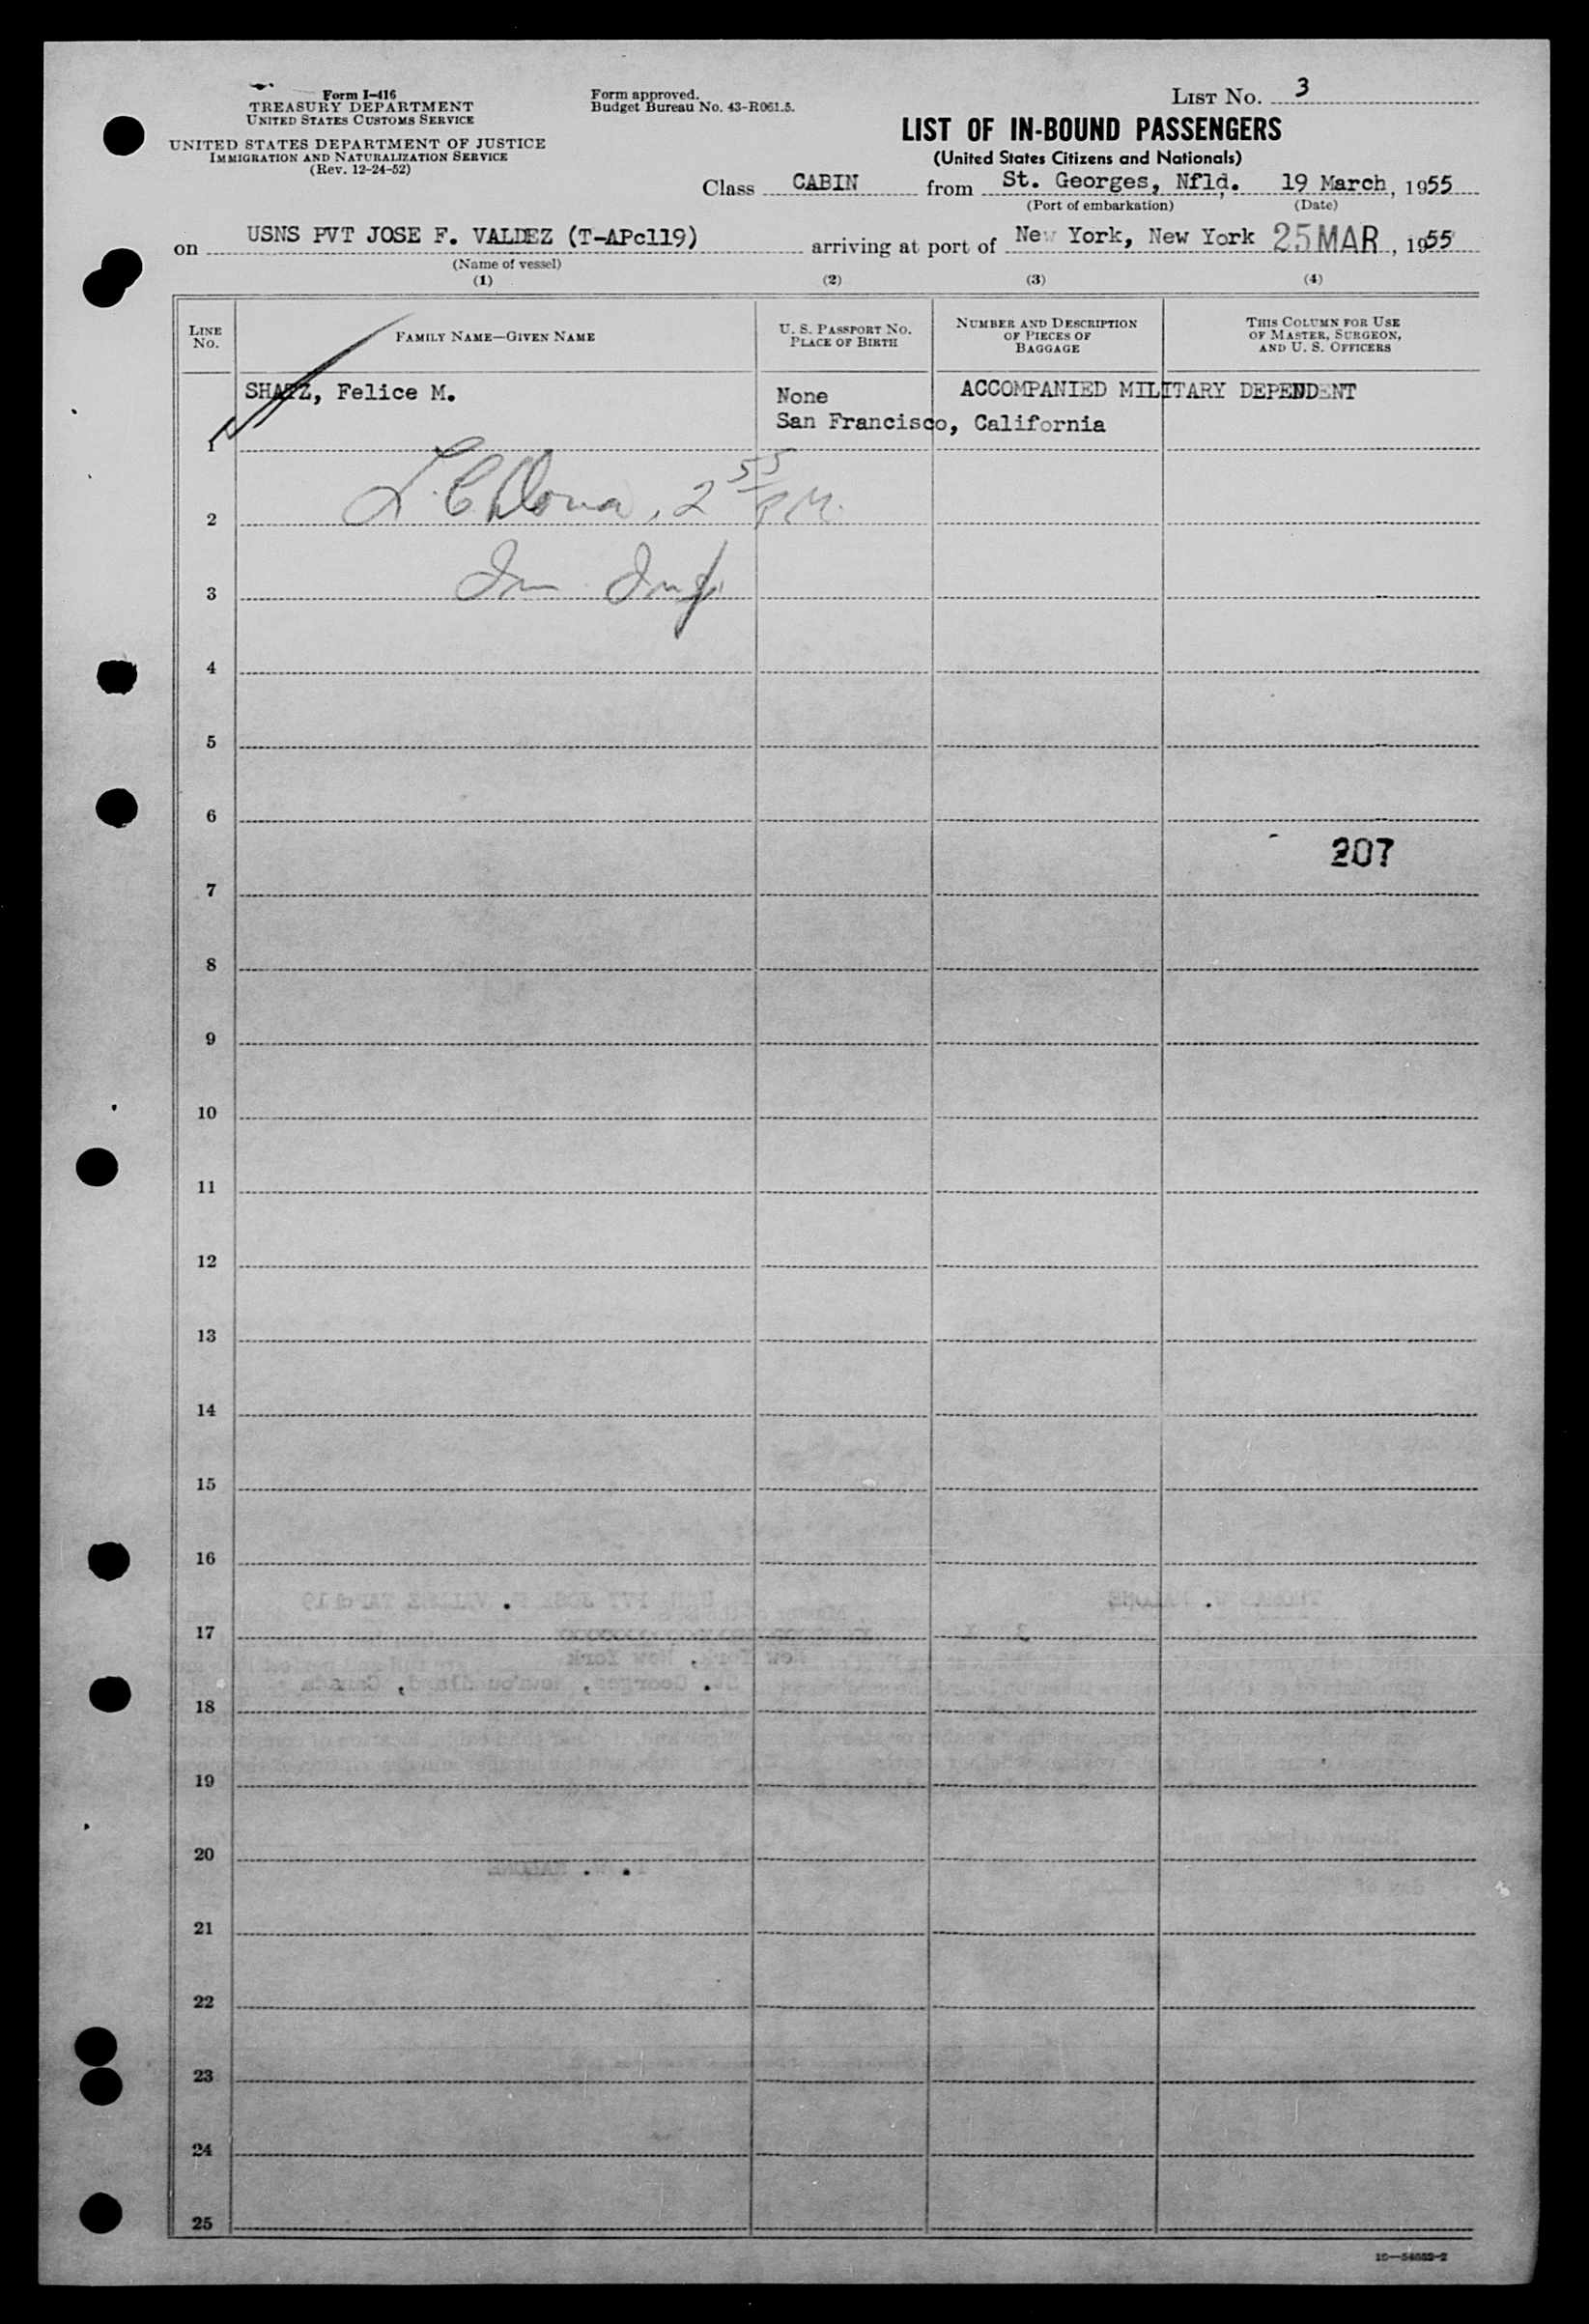 Form I-416
TREASURY DEPARTMENT
UNITED STATES CUSTOMS SERVICE
UNITED STATES DEPARTMENT OF JUSTICE
IMMIGRATION AND NATURALIZATION SERVICE
(Rev. 12-24-52)
Form approved.
Budget Bureau No. 43-R061.5.
LIST NO. 3
LIST OF IN-BOUND PASSENGERS
(United States Citizens and Nationals)
Class CABIN from St. Georges, Nfld. 19 March, 1955
(Port of embarkation) (Date)
on USNS PVT JOSE F. VALDEZ (T-APc119) arriving at port of New York, New York 25 MAR, 1955
(Name of vessel)
(1) (2) (3) (4)
LINE NO.
FAMILY NAME—GIVEN NAME
U. S. PASSPORT NO.
PLACE OF BIRTH
NUMBER AND DESCRIPTION
OF PIECES OF
BAGGAGE
THIS COLUMN FOR USE
OF MASTER, SURGEON,
AND U. S. OFFICERS
SHAPZ, Felice M. None ACCOMPANIED MILITARY DEPENDENT
San Francisco, California
1
2 2 55 P.M.
3
4
5
6
207
7
8
9
10
11
12
13
14
15
16
17
18
19
20
21
22
23
24
25